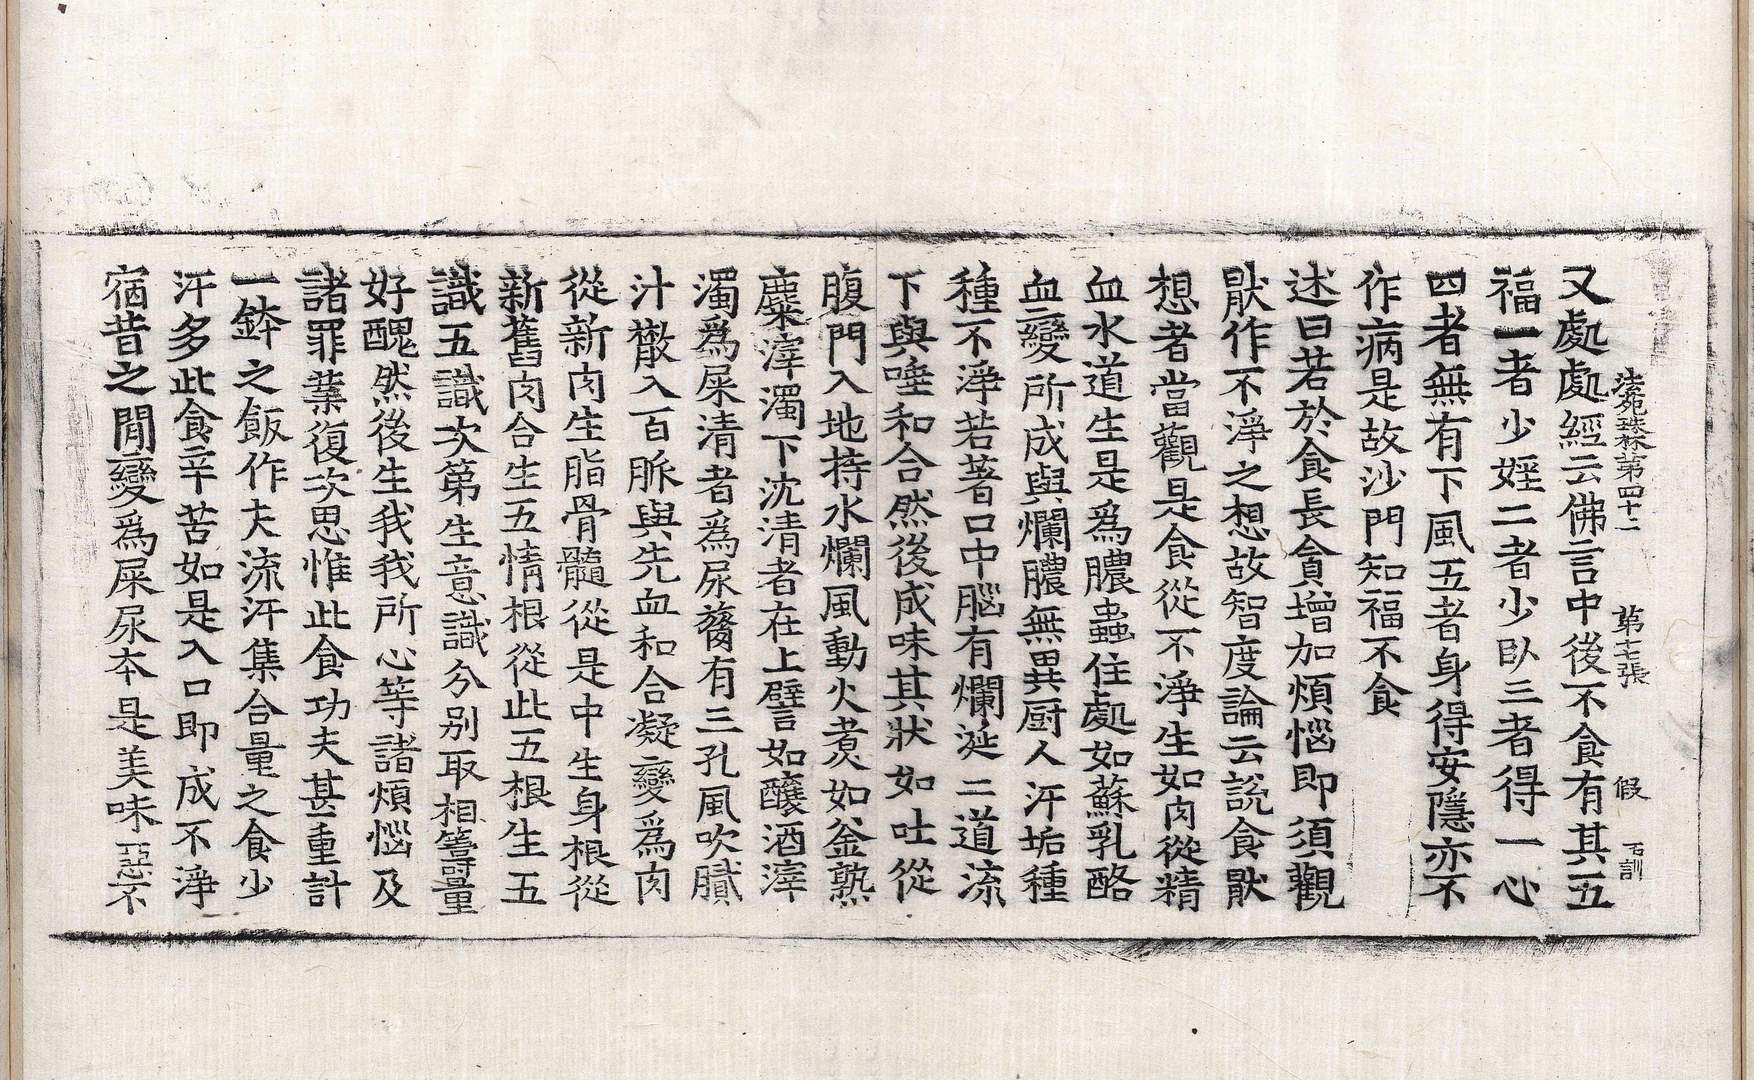 法苑珠林第四十二 第十七張 假 石訓
又處處經云佛言中後不食有其五
福一者少婬二者少臥三者得一心
四者無有下風五者身得安隱亦不
作病是故沙門知福不食
述曰若於食長貪增加煩惱即須觀
猒作不淨之想故智度論云說食猒
想者當觀是食從不淨生如肉從精
血水道生是為膿蟲住處如蘇乳酪
血變所成與爛膿無異厨人汗垢種
種不淨若著口中腦有爛涎二道流
下與唾和合然後成味其狀如吐從
腹門入地持水爛風動火煮如釜熟
麋滓濁下沈清者在上譬如釀酒滓
濁為屎清者為尿䐡有三孔風吹膩
汁散入百脈與先血和合凝變為肉
從新肉生脂骨髓從是中生身根從
新舊肉合生五情根從此五根生五
識五識次第生意識分別取相籌量
好醜然後生我我所心等諸煩惱及
諸罪業復次思惟此食功夫甚重計
一鉢之飯作夫流汗集合量之食少
汗多此食辛苦如是入口即成不淨
宿昔之間變為屎尿本是美味惡不